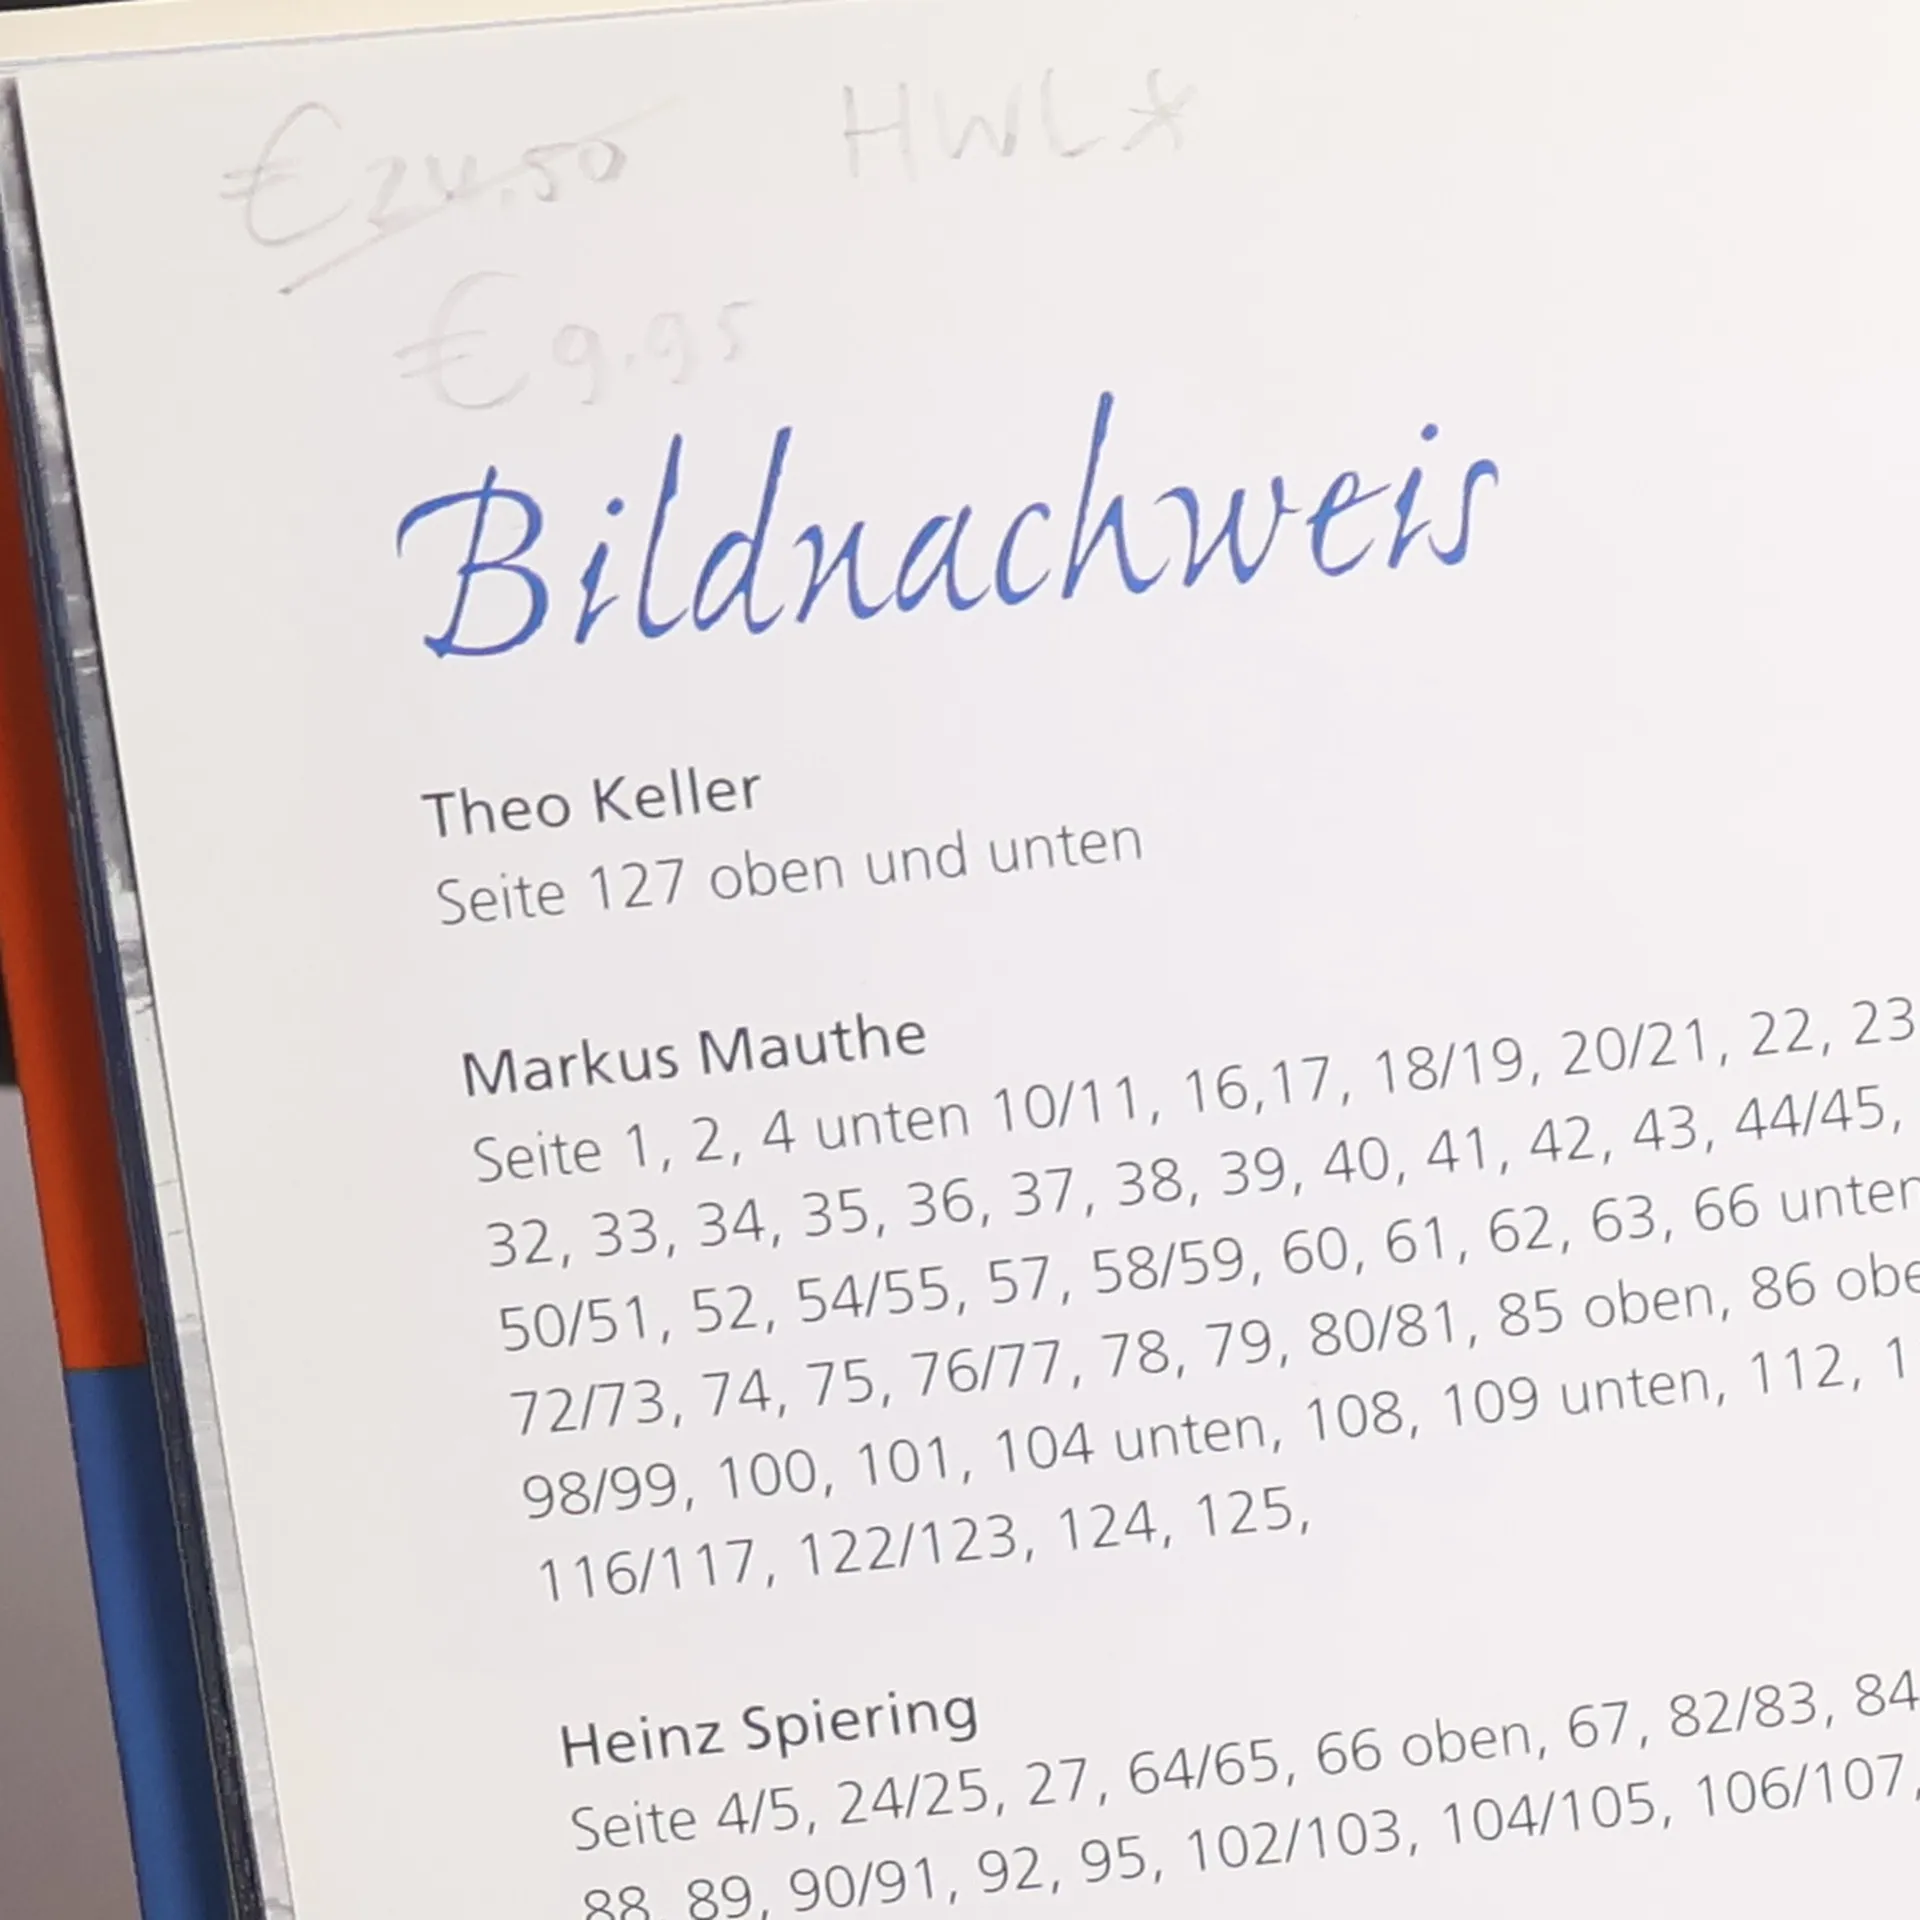 € 24.50 HWL*
€ 9.95
Bildnachweis
Theo Keller
Seite 127 oben und unten
Markus Mauthe
Seite 1, 2, 4 unten 10/11, 16,17, 18/19, 20/21, 22, 23
32, 33, 34, 35, 36, 37, 38, 39, 40, 41, 42, 43, 44/45,
50/51, 52, 54/55, 57, 58/59, 60, 61, 62, 63, 66 unten
72/73, 74, 75, 76/77, 78, 79, 80/81, 85 oben, 86 obe
98/99, 100, 101, 104 unten, 108, 109 unten, 112, 1
116/117, 122/123, 124, 125,
Heinz Spiering
Seite 4/5, 24/25, 27, 64/65, 66 oben, 67, 82/83, 84
88, 89, 90/91, 92, 95, 102/103, 104/105, 106/107,